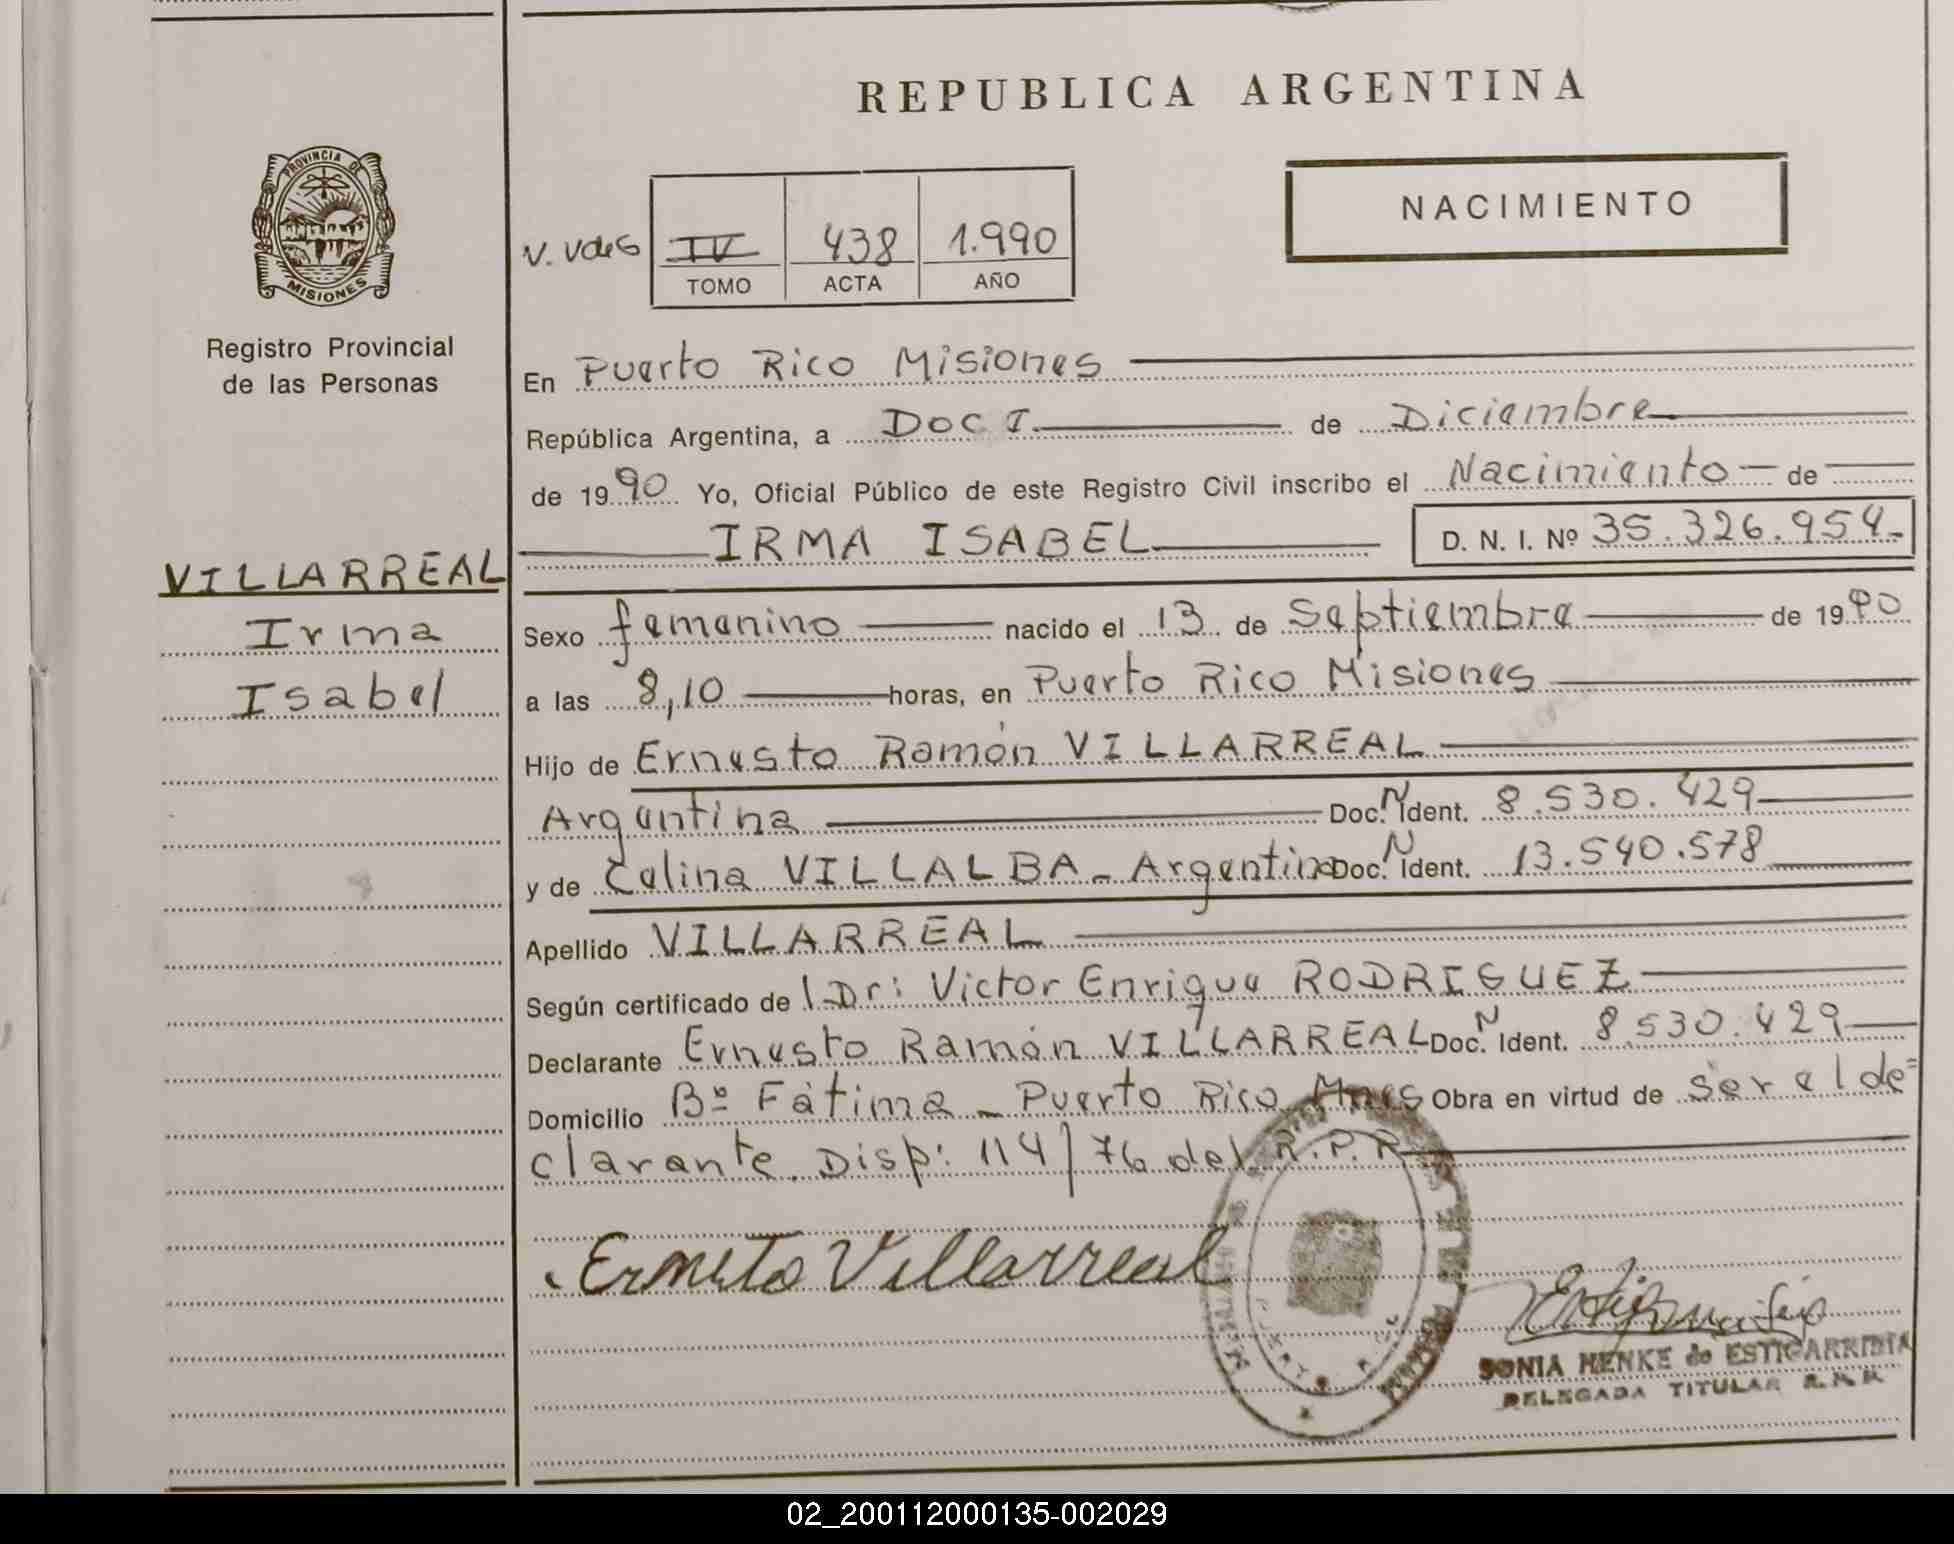 REPUBLICA ARGENTINA
NACIMIENTO
PROVINCIA DE
MISIONES
Registro Provincial
de las Personas
IV 438 1.990
TOMO ACTA AÑO
En Puerto Rico Misiones
República Argentina, a DOCE de Diciembre
de 1990 Yo, Oficial Público de este Registro Civil inscribo el Nacimiento de
IRMA ISABEL D. N. I. Nº 35.326.954
VILLARREAL
Irma
Isabel
Sexo femenino nacido el 13 de Septiembre de 1990
a las 8,10 horas, en Puerto Rico Misiones
Hijo de Ernesto Ramón VILLARREAL
Argentina Doc. N Ident. 8.530.429
y de Celina VILLALBA - Argentina Doc. N Ident. 13.540.578
Apellido VILLARREAL
Según certificado de l Dr: Victor Enrique RODRIGUEZ
Declarante Ernesto Ramón VILLARREAL Doc. N Ident. 8.530.429
Domicilio Bº Fátima - Puerto Rico Mnes Obra en virtud de ser el de=
clarante. Disp: 114/76 del R.P.P.
Ernesto Villarreal
SONIA HENKE de ESTIGARRIBIA
DELEGADA TITULAR
02_200112000135-002029